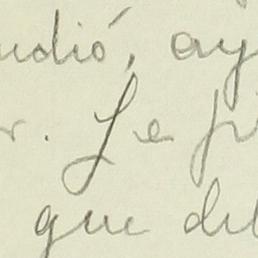 udió, ay
r. Le pi
que del